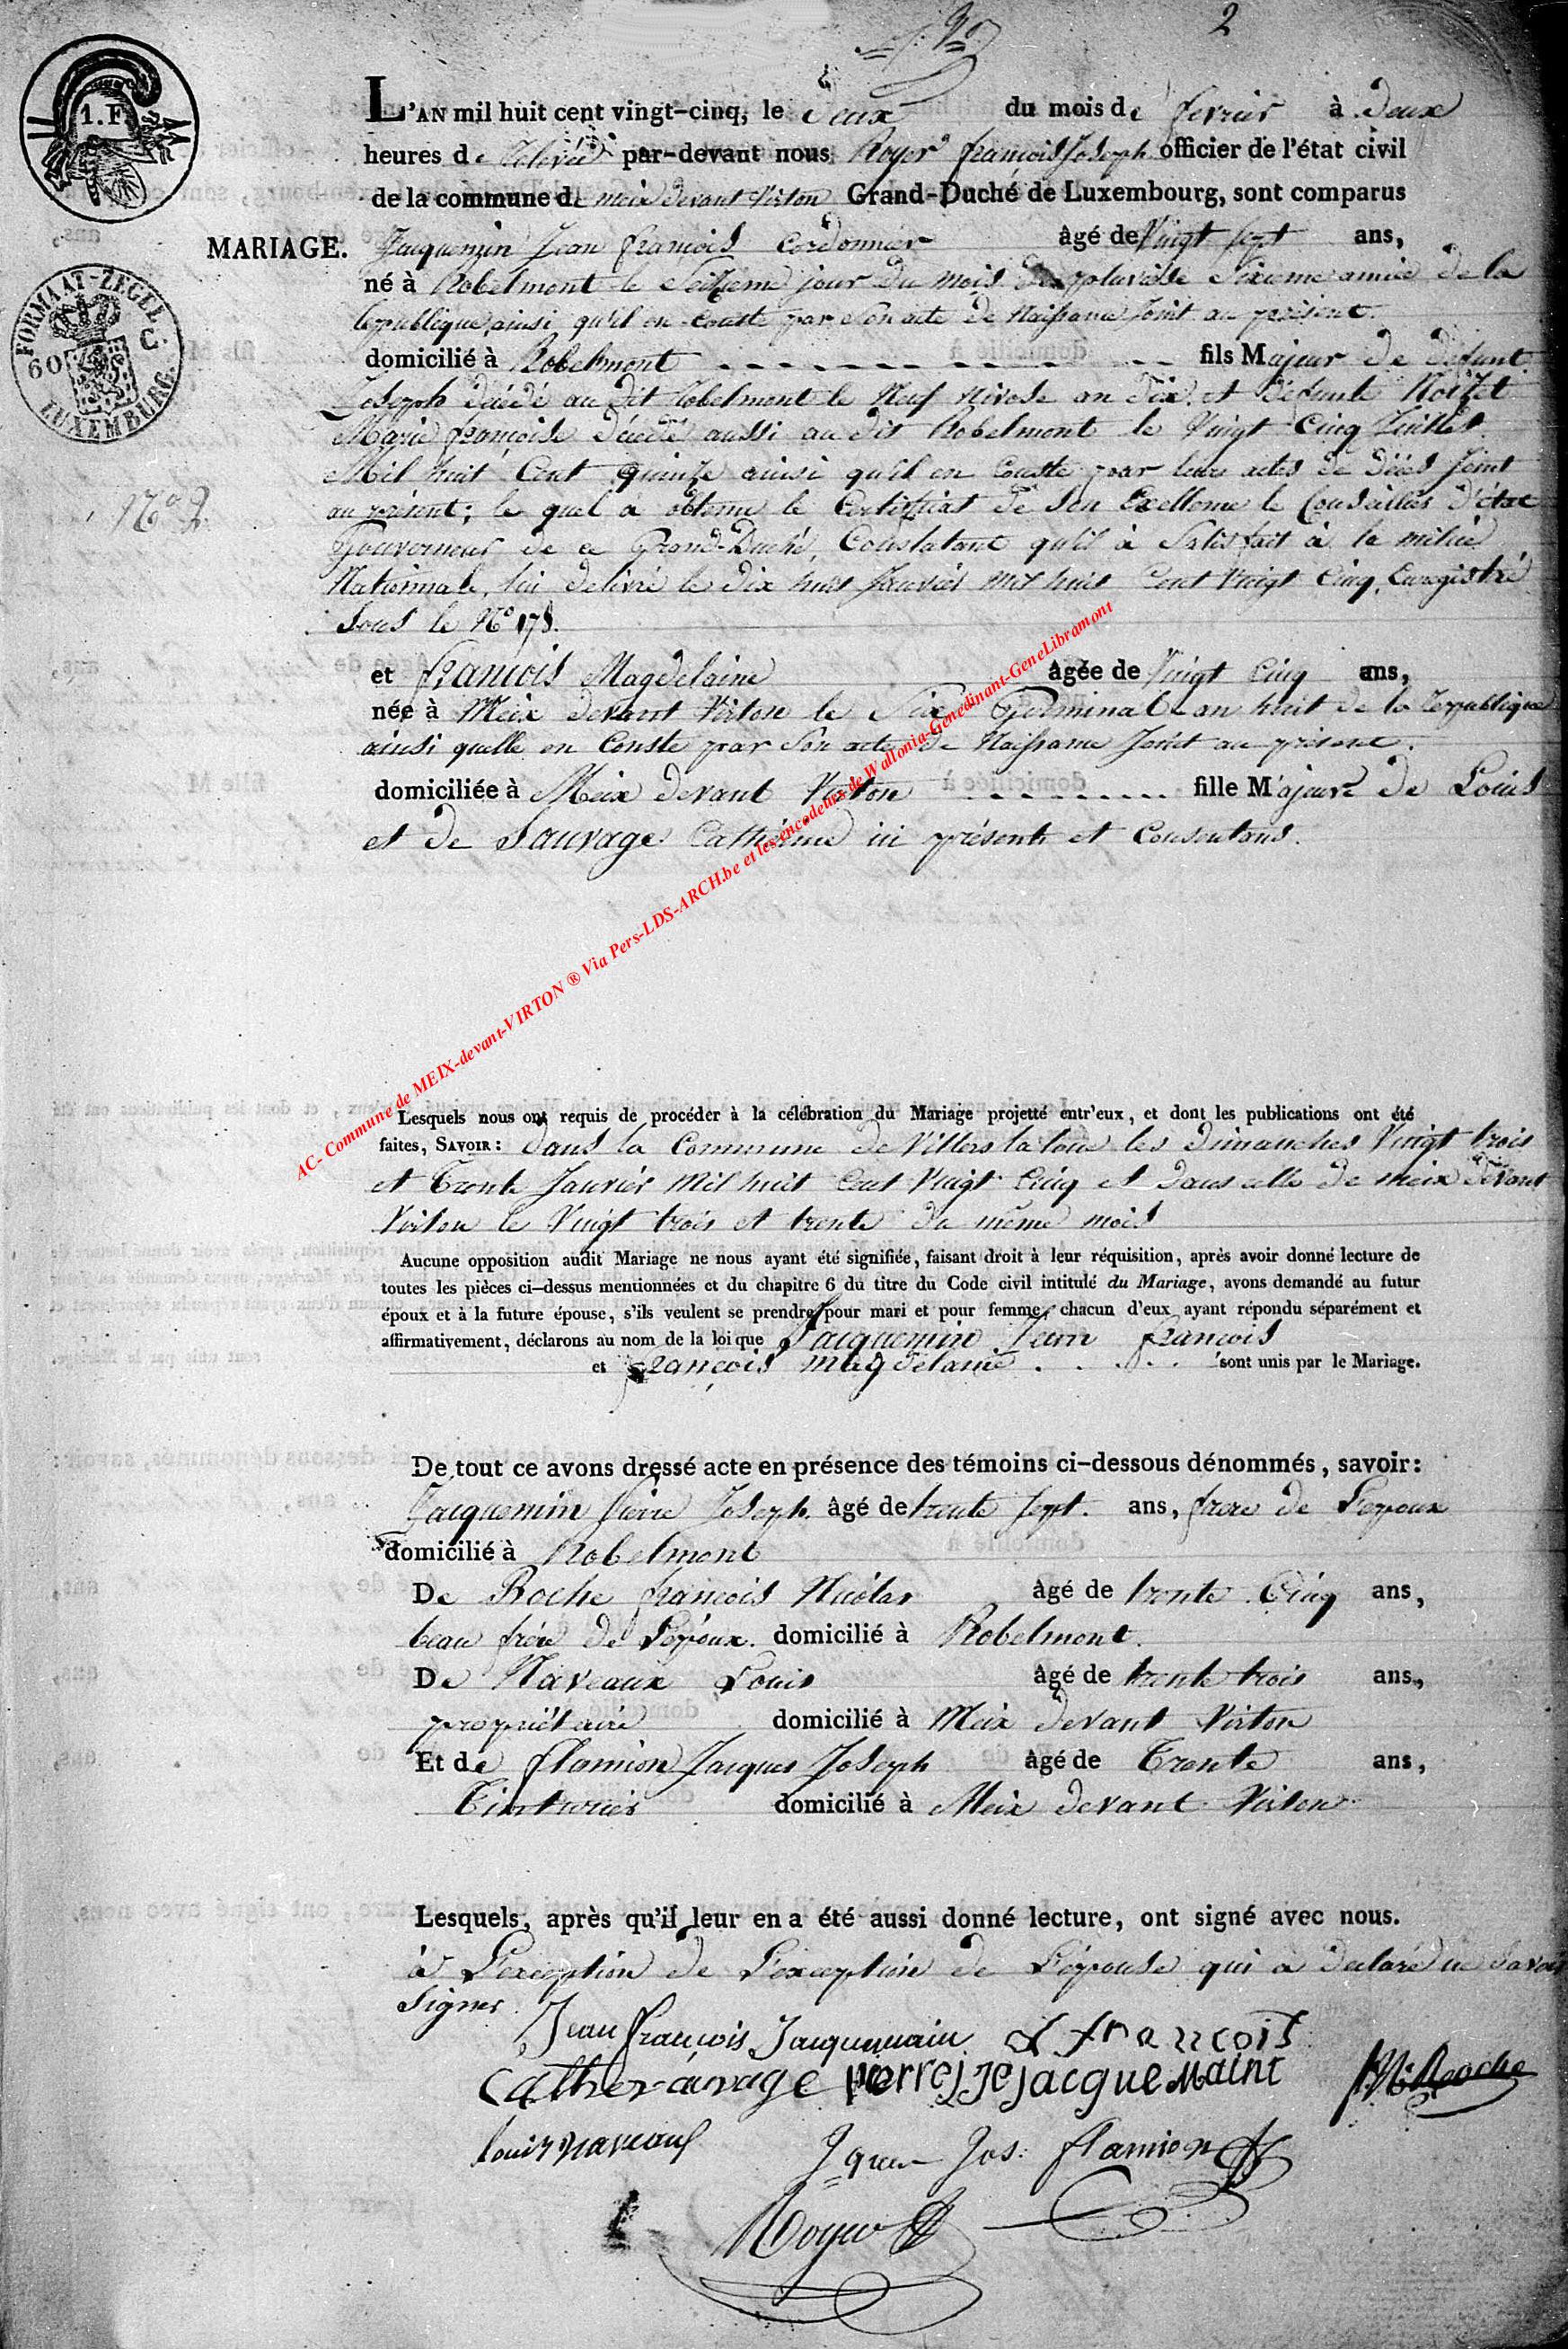 2
1. F.
L'AN mil huit cent vingt-cinq, le deux du mois de fevrier à deux
heures de relevée par-devant nous Royer françois Joseph officier de l'état civil
de la commune de meix devant Virton Grand-Duché de Luxembourg, sont comparus
MARIAGE. Jacquemin Jean françois Cordonnier âgé de Vingt sept ans,
FORMAAT-ZEGEL. 60 C. LUXEMBURG.
né à Robelmont le Seizieme jour du mois de pluviose Sixieme année de la
republique, ainsi qu'il en Conste par Son acte de Naissance Joint au présent.
domicilié à Robelmont fils Majeur de défunt
Joseph décédé au dit Robelmont le Neuf Nivose an dix, et défunte Noizet
Marie françoise décédé aussi au dit Robelmont le Vingt Cinq Juillet
Mil huit Cent quinze ainsi qu'il en Conste par leurs actes de décès Joint
au présent; le quel à obtenu le Certificat de Son Exellence le Conseiller d'état
Gouverneur de ce Grand-Duché, Constatant qu'il à Satisfait à la milice
Nationnale, lui delivré le dix huit Janvier mil huit Cent Vingt Cinq, Enregistré
Sous le Nº 178.
Nº 2.
et françois Magdelaine âgée de Vingt Cinq ans,
née à Meix devant Virton le Six Germinal an huit de la republique
ainsi quelle en Conste par Son acte de Naissance Joint au présent.
domiciliée à Meix devant Virton fille Majeure de Louis
et de Sauvage Catherine ici présents et Consentans.
AC- Commune de MEIX-devant-VIRTON ® Via Pers-LDS-ARCH.be et les encodeurs de Wallonia-Genedinant-GeneLibramont
Lesquels nous ont requis de procéder à la célébration du Mariage projetté entr'eux, et dont les publications ont été
faites, SAVOIR: dans la Commune de Villers la loue les dimanches Vingt trois
et Trente Janvier Mil huit Cent Vingt Cinq et dans celle de meix devant
Virton le Vingt trois et trente du même mois
Aucune opposition audit Mariage ne nous ayant été signifiée, faisant droit à leur réquisition, après avoir donné lecture de
toutes les pièces ci-dessus mentionnées et du chapitre 6 du titre du Code civil intitulé du Mariage, avons demandé au futur
époux et à la future épouse, s'ils veulent se prendre pour mari et pour femme, chacun d'eux ayant répondu séparément et
affirmativement, déclarons au nom de la loi que Jacquemin Jean françois
et françois magdelaine sont unis par le Mariage.
De tout ce avons dressé acte en présence des témoins ci-dessous dénommés, savoir:
Jacquemin Pierre Joseph âgé de trente sept. ans, frere de L'epoux
domicilié à Robelmont
De Roche françois Nicolas âgé de trente Cinq ans,
beau frére de L'époux. domicilié à Robelmont.
De Naveaux Louis âgé de trente trois ans,
propriétaire domicilié à Meix devant Virton
Et de flamion Jacques Joseph âgé de Trente ans,
Tinturier domicilié à Meix devant Virton
Lesquels, après qu'il leur en a été aussi donné lecture, ont signé avec nous.
à L'exception de L'exception de L'épouse qui a declaré ne Savoir
Signer.
Jean françois Jacquemain L françois
Cather auvage pierre jacquemaint Roche
louis naveaux Jques Jos: flamion
Royer